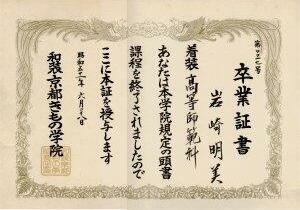 卒業証書
岩崎明美
着装高等師範科
あなたは本学院規定の頭書
課程を終了されましたので
ここに本証を授与します
昭和五十一年六月十八日
和装京都きもの学院